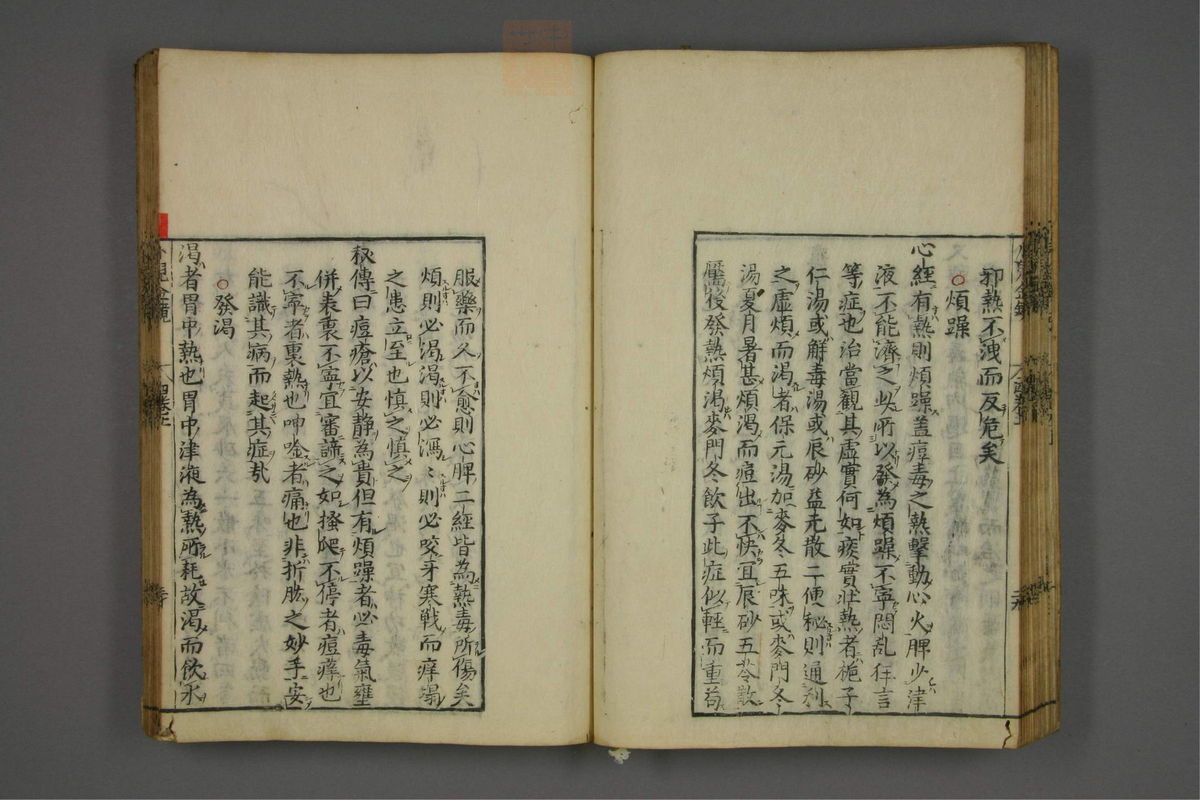 邪熱不洩而反危矣
○煩躁
心經有熱則煩躁蓋痘毒之熱擊動心火脾少津
液不能濟之此所以發為煩躁不寧悶亂狂言
等症也治當觀其虛實何如痰實壯熱者梔子
仁湯或解毒湯或辰砂益元散二便秘則通利
之虛煩而渴者保元湯加麥冬五味或麥門冬
湯夏月暑甚煩渴而痘出不快宜辰砂五苓散
靨後發熱煩渴麥門冬飲子此症似輕而重苟
服藥而久不愈則心脾二經皆為熱毒所傷矣
煩則必渴渴則必瀉〻則必咬牙寒戰而痒塌
之患立至也慎之慎之
秘傳曰痘瘡以安靜為貴但有煩躁者必毒氣壅
併表裏不寧宜審諦之如搔爬不停者痘癢也
不寧者裏熱也呻吟者痛也非折肱之妙手安
能識其病而起其症哉
○發渴
渴者胃中熱也胃中津液為熱所耗故渴而飲水